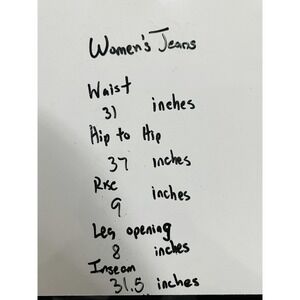 Women's Jeans
Waist
31 inches
Hip to Hip
37 inches
Rise
9 inches
Leg opening
8 inches
Inseam
31.5 inches